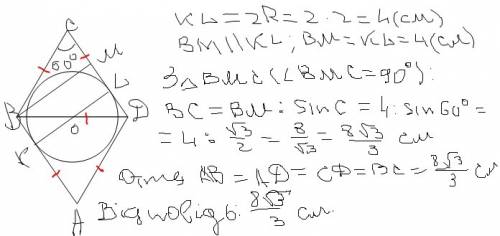 C
60°
M
L
B
D
O
K
A
KL = 2R = 2·2 = 4 (см)
BM || KL; BM = KL = 4 (см)
З ΔBMC (∠BMC = 90°):
BC = BM : sin C = 4 : sin 60° =
= 4 : √3/2 = 8/√3 = 8√3/3 см
Отже AB = AD = CD = BC = 8√3/3 см
Відповідь: 8√3/3 см.